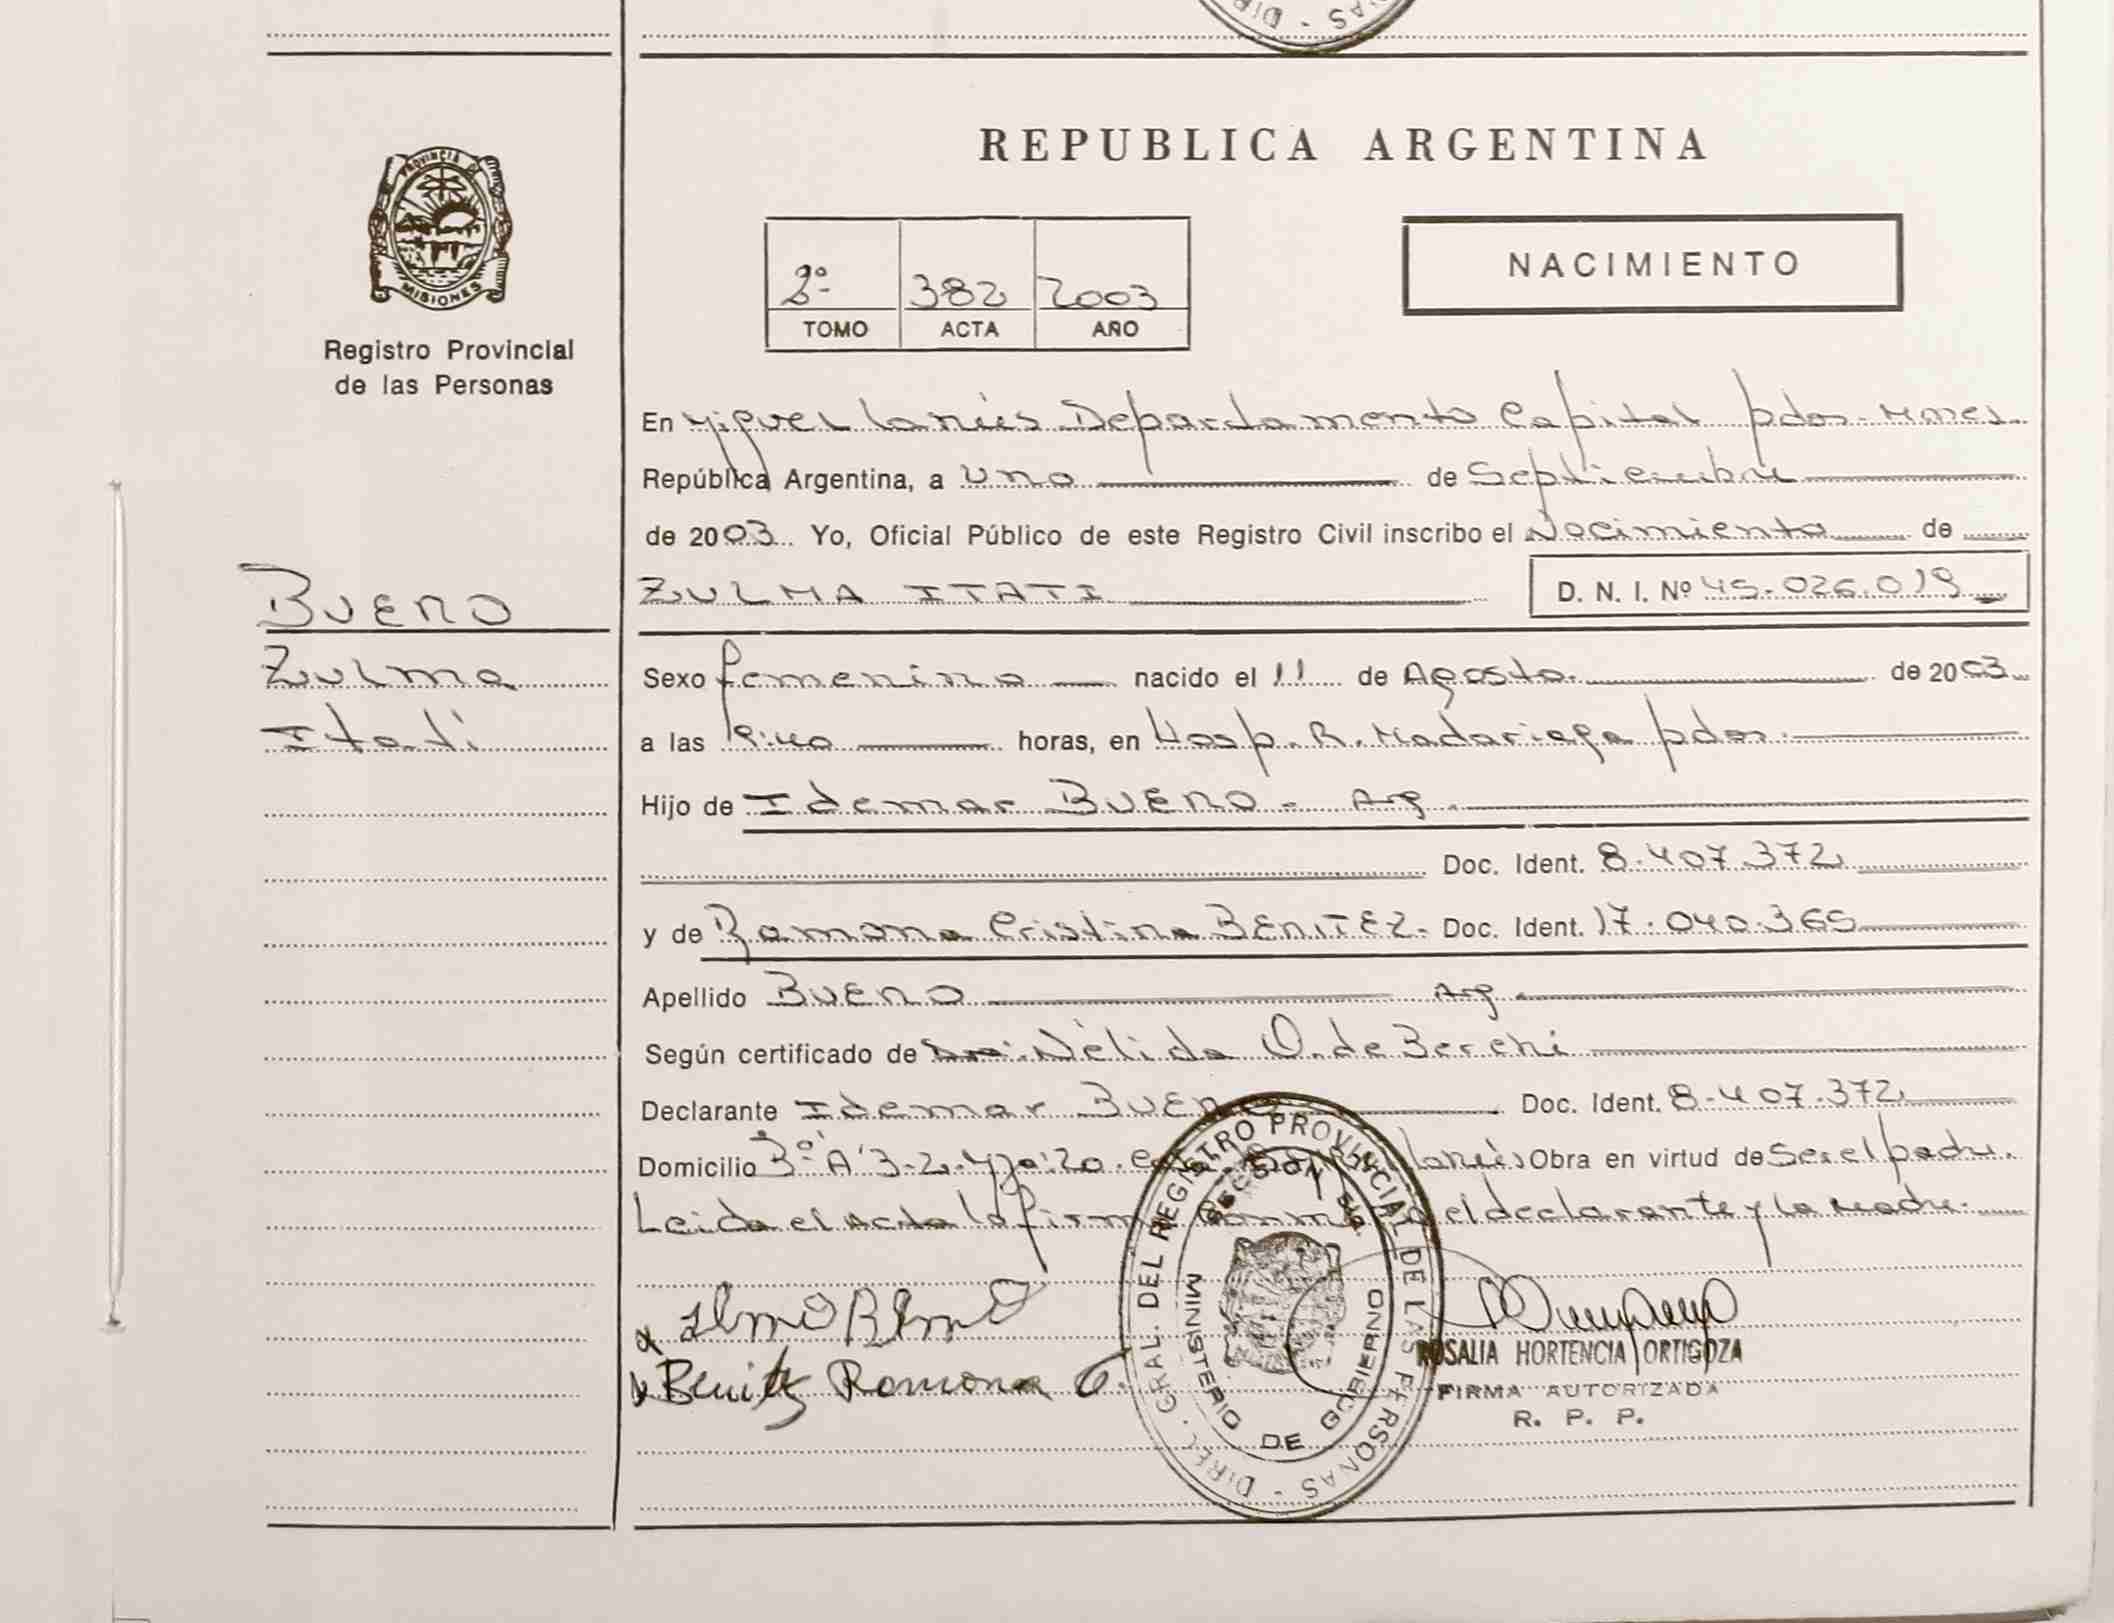 DIR - NAS
PROVINCIA DE
MISIONES
Registro Provincial
de las Personas
Bueno
Zulma
Itati
REPUBLICA ARGENTINA
2º 382 2003
TOMO ACTA AÑO
NACIMIENTO
En Miguel Lanús Departamento Capital pdas. Mnes.
República Argentina, a uno de Septiembre
de 2003 Yo, Oficial Público de este Registro Civil inscribo el Nacimiento de
ZULMA ITATI D. N. I. Nº 45.026.019
Sexo femenino nacido el 11 de Agosto. de 2003
a las horas, en Hosp. R. Madariaga pdas.
Hijo de Idemar BUENO - Arg.
Doc. Ident. 8.407.372
y de Ramona Cristina BENITEZ. Doc. Ident. 17.040.365
Apellido BUENO Arg.
Según certificado de Nélida O. de Berchi
Declarante Idemar BUENO Doc. Ident. 8.407.372
Domicilio Lanús Obra en virtud de Ser el padre.
Leida el acta la firma el declarante y la madre.
Benitez Ramona C.
ROSALIA HORTENCIA ORTIGOZA
FIRMA AUTORIZADA
R. P. P.
DIREC. GRAL. DEL REGISTRO PROVINCIAL DE LAS PERSONAS -
MINISTERIO DE GOBIERNO